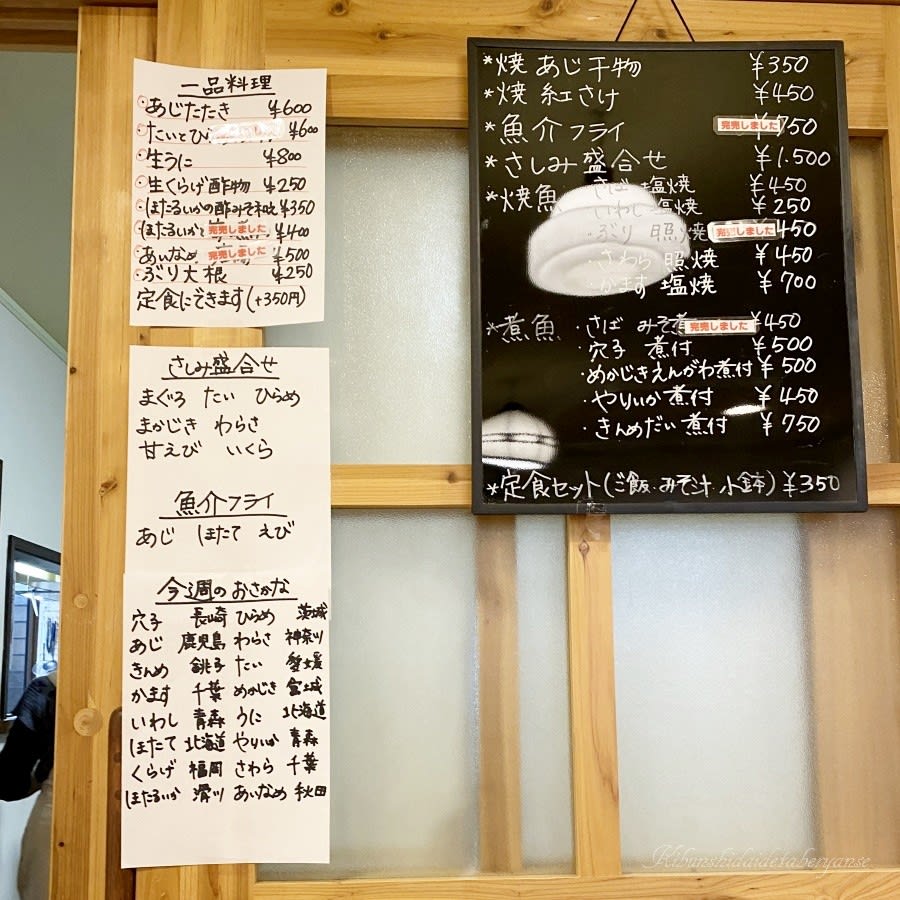 一品料理
あじたたき ¥600
たいとび ¥600
生うに ¥800
生くらげ酢物 ¥250
ほたるいかの酢みそ和え ¥350
ほたるいかと 完売しました ¥400
あいなめ 完売しました ¥500
ぶり大根 ¥250
定食にできます(+350円)
さしみ盛合せ
まぐろ たい ひらめ
まかじき わらさ
甘えび いくら
魚介フライ
あじ ほたて えび
今週のおさかな
穴子 長崎 ひらめ 茨城
あじ 鹿児島 わらさ 神奈川
きんめ 銚子 たい 愛媛
かます 千葉 めかじき 宮城
いわし 青森 うに 北海道
ほたて 北海道 やりいか 青森
くらげ 福岡 さわら 千葉
ほたるいか 滑川 あいなめ 秋田
*焼 あじ干物 ¥350
*焼 紅さけ ¥450
*魚介フライ 完売しました ¥750
*さしみ盛合せ ¥1.500
*焼魚 さば 塩焼 ¥450
いわし塩焼 ¥250
・ぶり 照焼 完売しました 450
・さわら 照焼 ¥450
・かます 塩焼 ¥700
*煮魚 ・さば みそ煮 完売しました ¥450
・穴子 煮付 ¥500
・めかじきえんがわ煮付 ¥500
・やりいか煮付 ¥450
・きんめだい煮付 ¥750
*定食セット(ご飯.みそ汁.小鉢) ¥350
Kibunshidaidetaberyanse